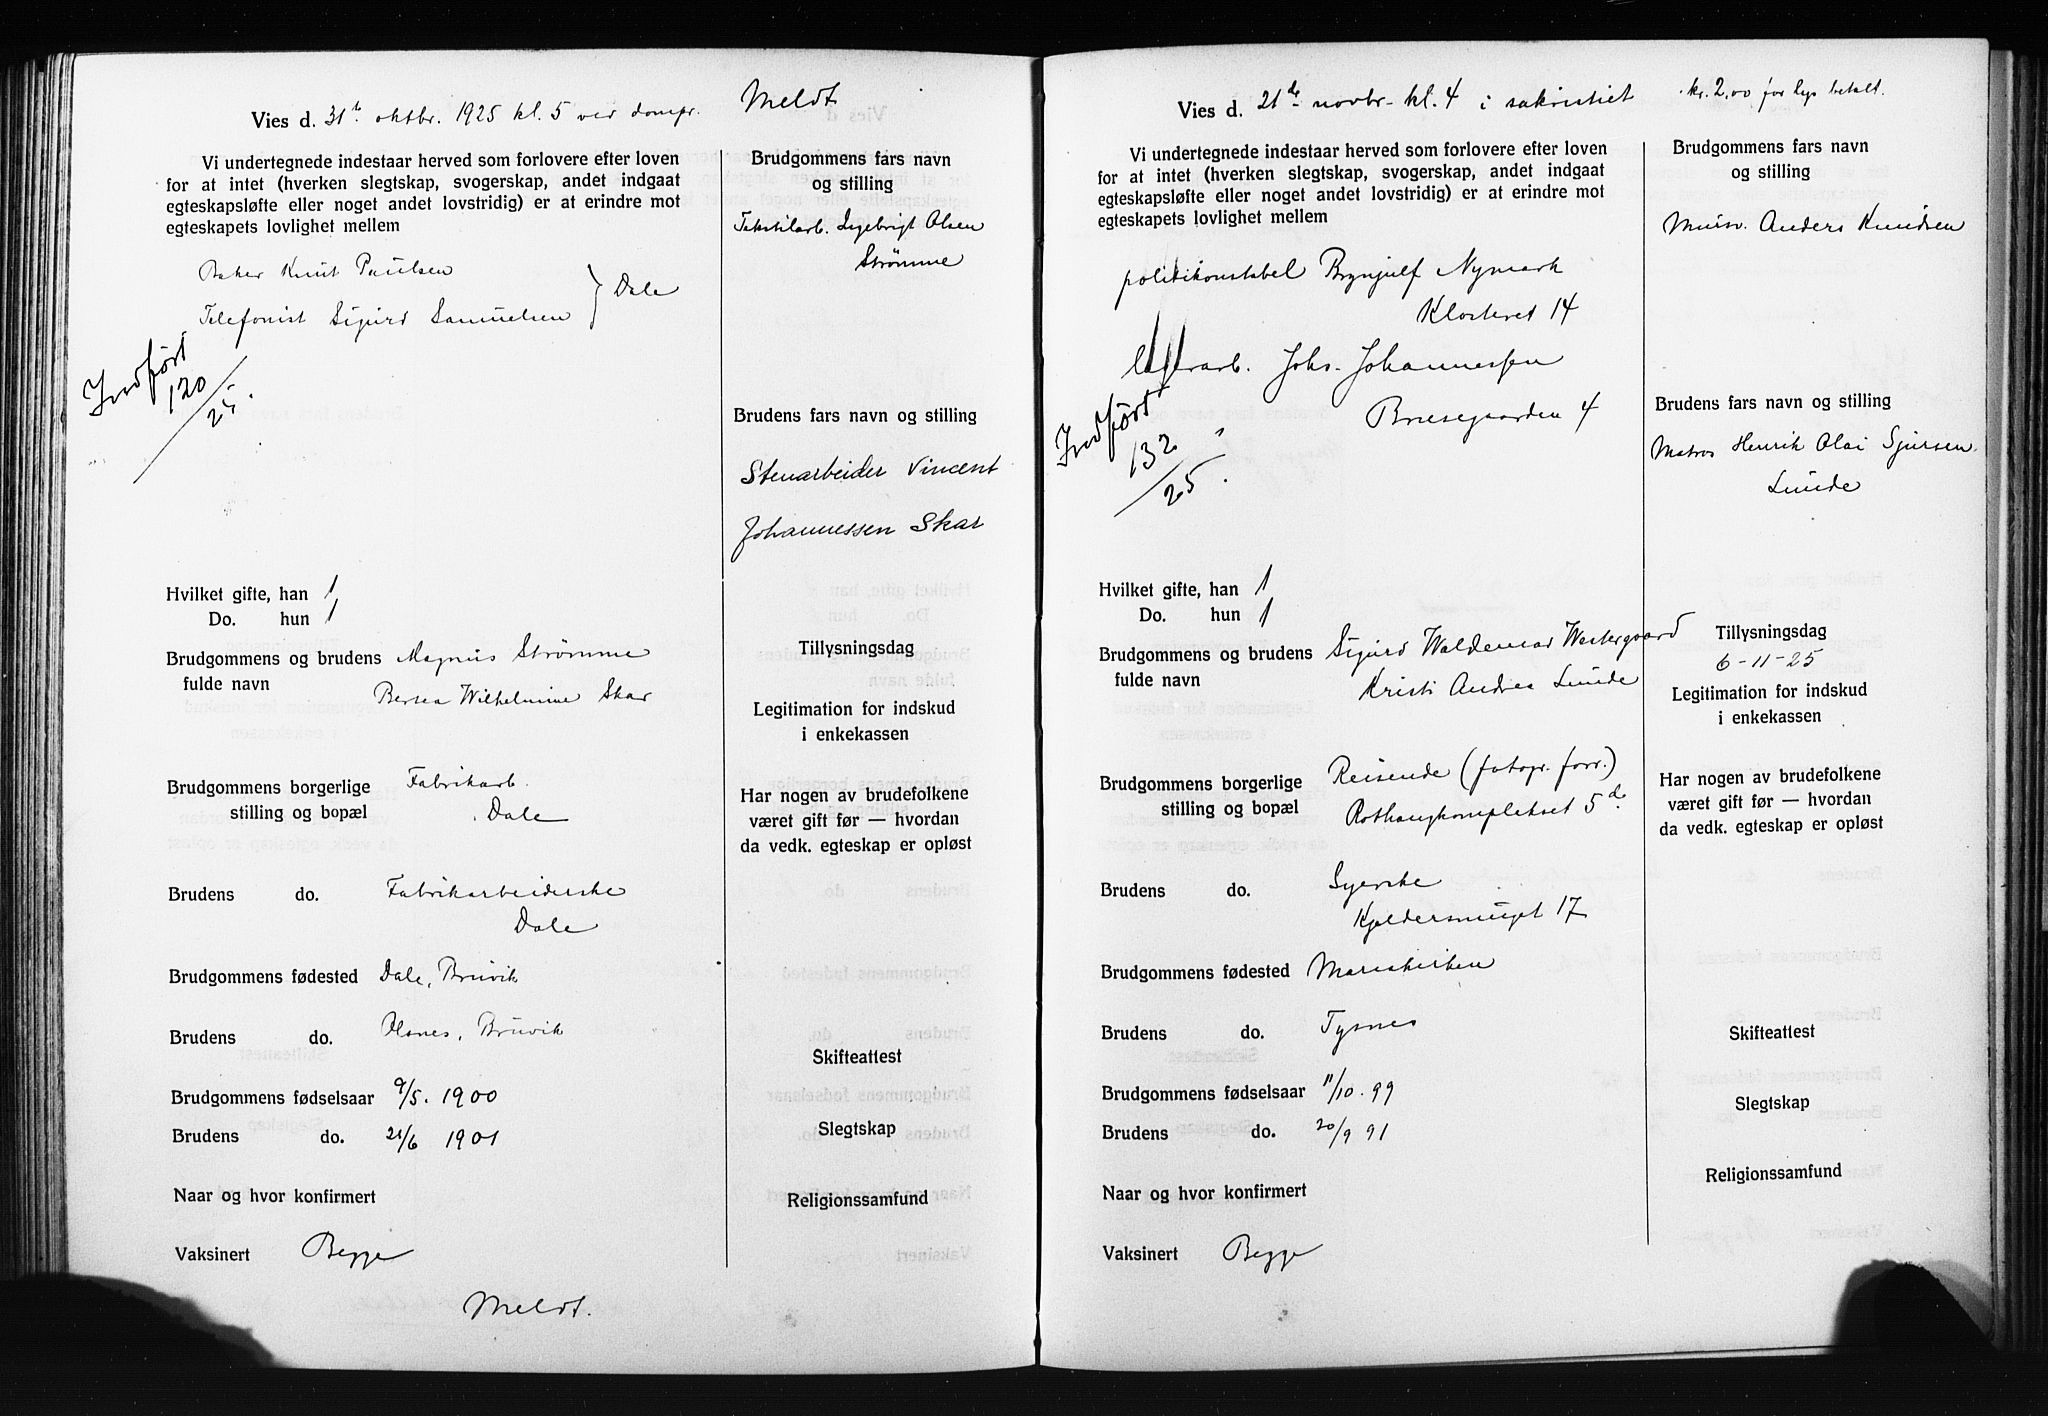 Vies d. 31te oktbr. 1925 kl. 5 ved dompr.
Meldt
Vi undertegnede indestaar herved som forlovere efter loven
for at intet (hverken slegtskap, svogerskap, andet indgaat
egteskapsløfte eller noget andet lovstridig) er at erindre mot
egteskapets lovlighet mellem
Baker Knut Paulsen
Telefonist Sigurd Samuelsen } Dale
Indført
120
/25.
Brudgommens fars navn
og stilling
Tekstilarb. Ingebrigt Olsen
Strømme
Brudens fars navn og stilling
Stenarbeider Vincent
Johannessen Skar
Hvilket gifte, han 1
Do. hun 1
Brudgommens og brudens Magnus Strømme
fulde navn
Bertea Wilhelmine Skar
Tillysningsdag
Legitimation for indskud
i enkekassen
Brudgommens borgerlige Fabrikarb.
stilling og bopæl Dale
Har nogen av brudefolkene
været gift før — hvordan
da vedk. egteskap er opløst
Brudens do. Fabrikarbeiderske
Dale
Brudgommens fødested Dale, Bruvik
Brudens do. Bruvik
Skifteattest
Brudgommens fødselsaar 9/5. 1900
Brudens do. 21/6 1901
Slegtskap
Naar og hvor konfirmert
Religionssamfund
Vaksinert Begge
Meldt.
Vies d. 21de novbr. kl. 4 i sakristiet
kr. 2,00 for lys betalt.
Vi undertegnede indestaar herved som forlovere efter loven
for at intet (hverken slegtskap, svogerskap, andet indgaat
egteskapsløfte eller noget andet lovstridig) er at erindre mot
egteskapets lovlighet mellem
politikonstabel Brynjulf Nymark
Klosteret 14
lagerarb. Johs. Johannessen
Brusegaarden 4
Indført
132
/25.
Brudgommens fars navn
og stilling
Mursv. Anders Knudsen
Brudens fars navn og stilling
Matros Henrik Olai Sjursen
Lunde
Hvilket gifte, han 1
Do. hun 1
Brudgommens og brudens Sigurd Waldemar Westergaard
fulde navn Kristi Andrea Lunde
Tillysningsdag
6-11-25
Legitimation for indskud
i enkekassen
Brudgommens borgerlige Reisende (fotogr. forr.)
stilling og bopæl Rothaugkomplekset 5 d.
Har nogen av brudefolkene
været gift før — hvordan
da vedk. egteskap er opløst
Brudens do. Syerske
Kjeldersmuget 17
Brudgommens fødested Mariakirken
Brudens do. Tysnes
Skifteattest
Brudgommens fødselsaar 11/10. 99
Slegtskap
Brudens do. 20/9 91
Religionssamfund
Naar og hvor konfirmert
Vaksinert Begge